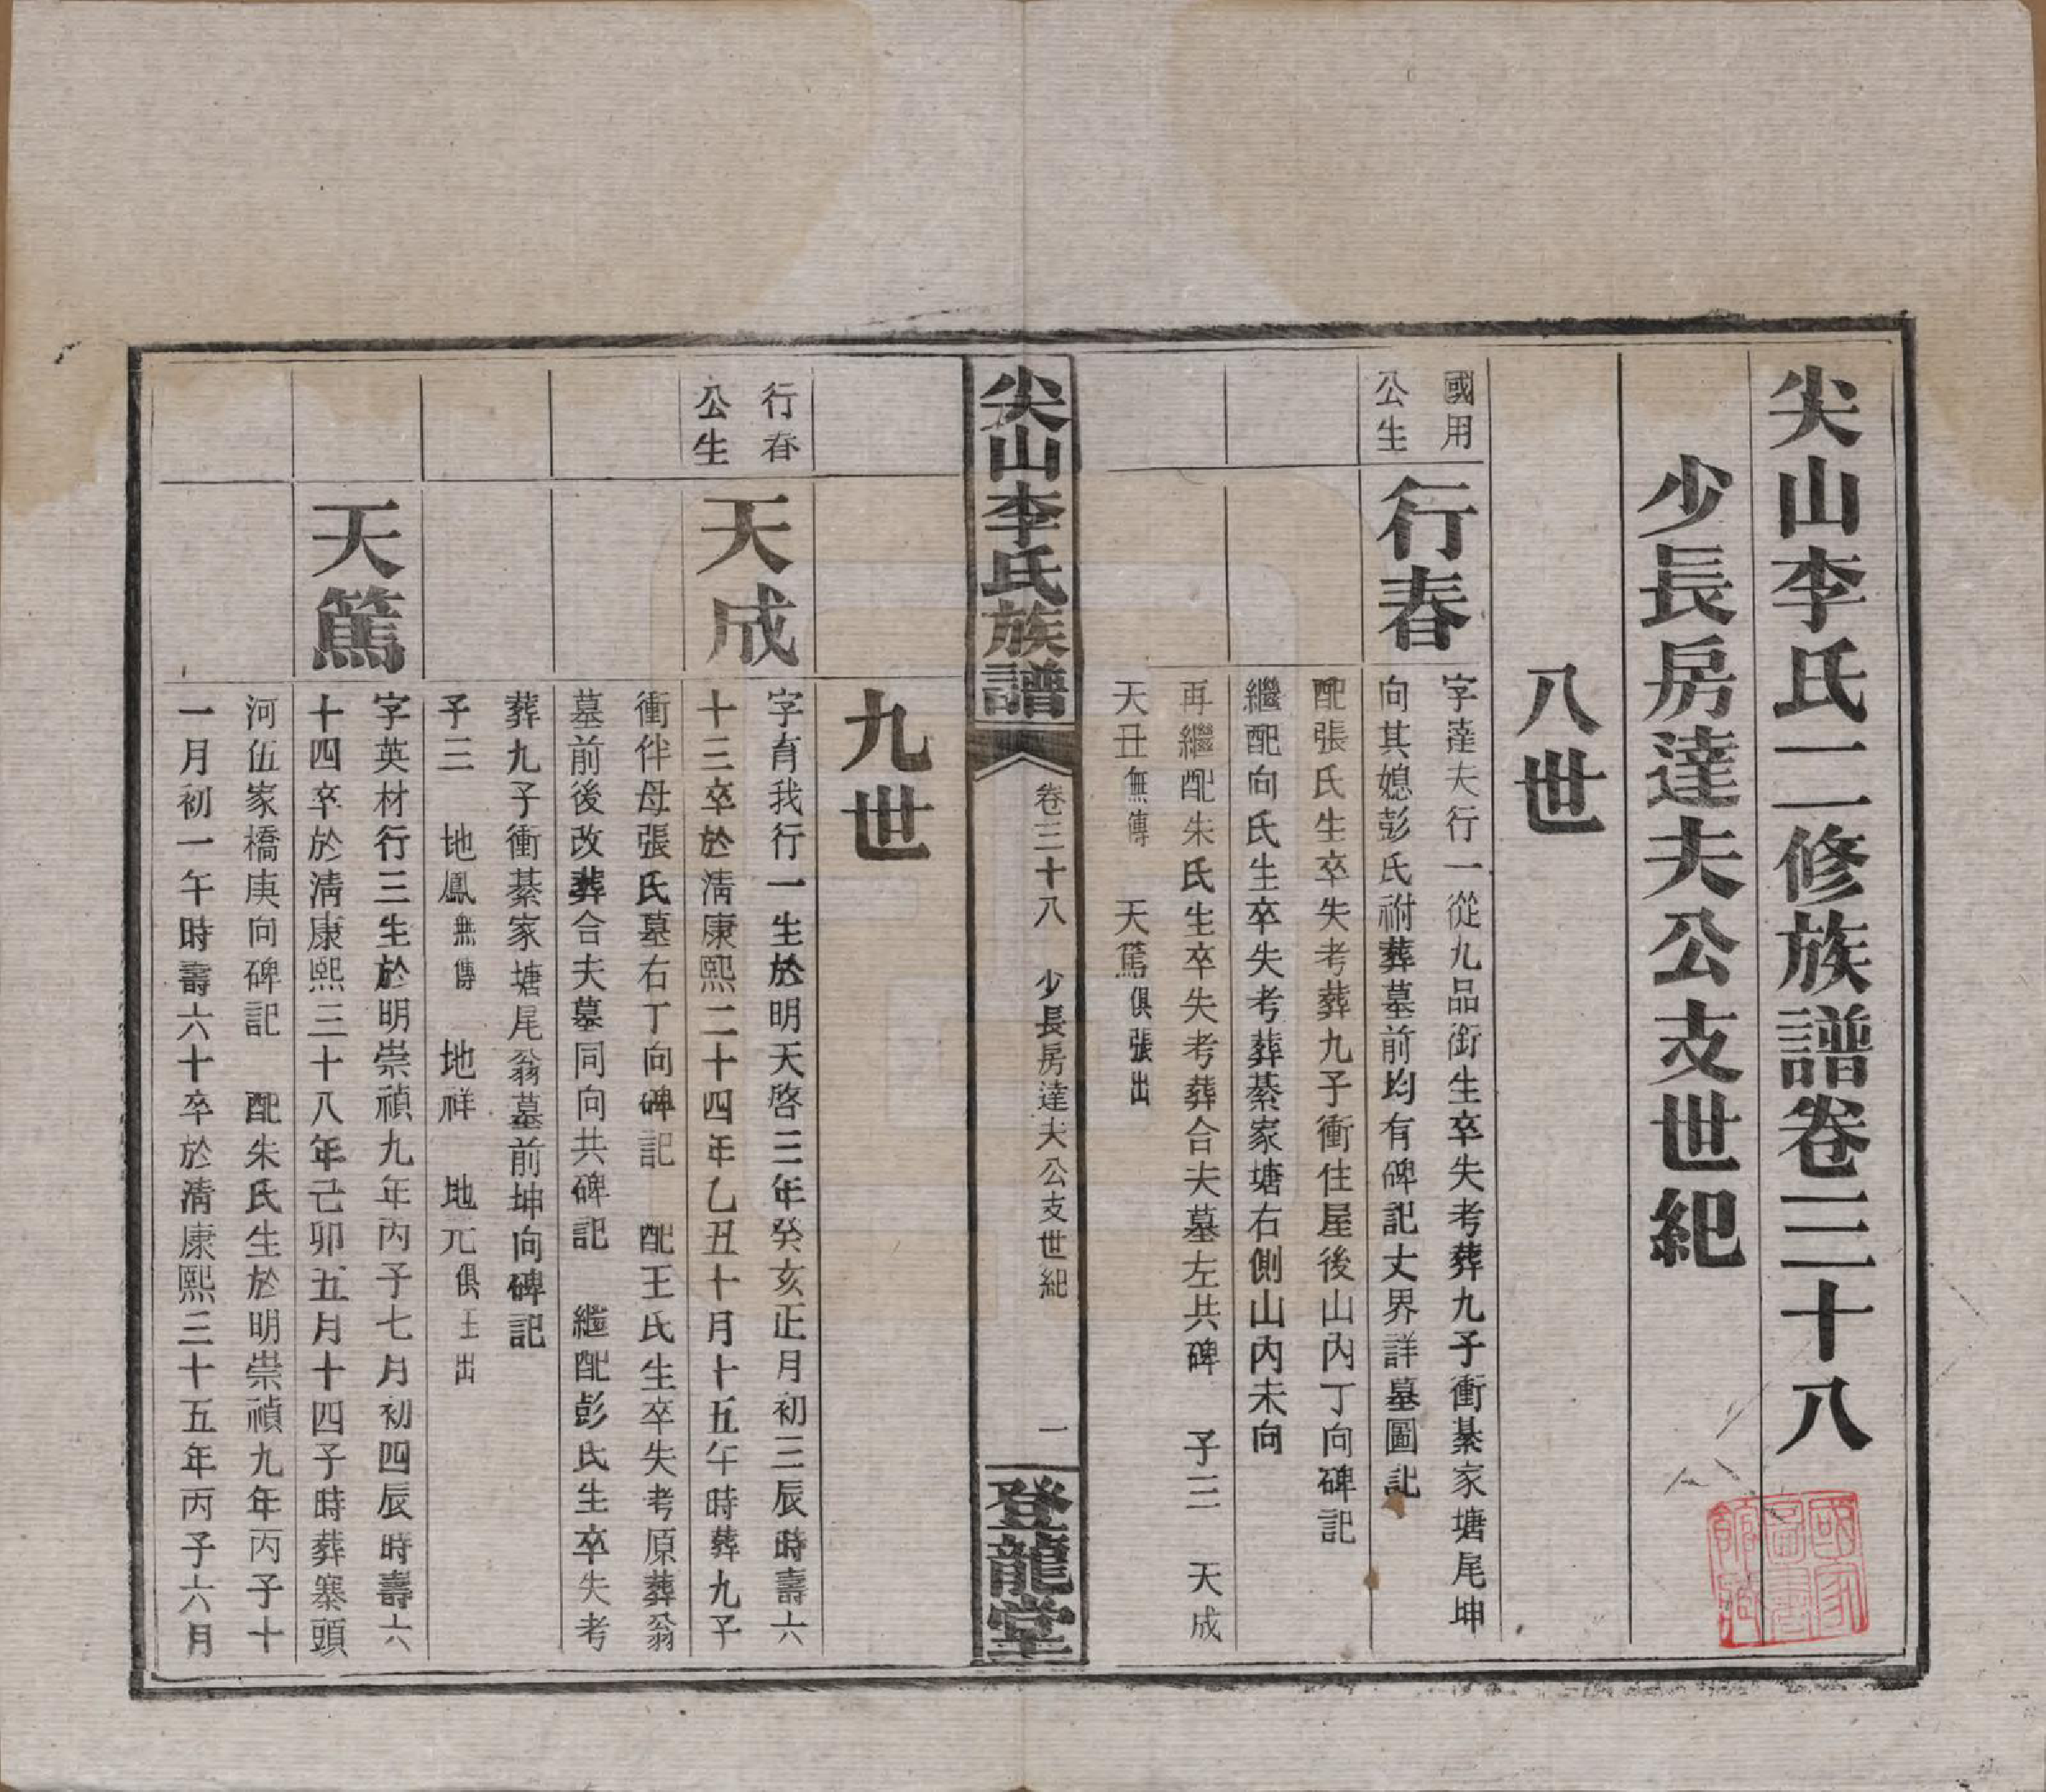 尖山李氏二修族譜卷三十八
少長房達夫公支世紀
八世
國用
公生
行春
字達夫行一從九品銜生卒失考葬九子衝綦家塘尾坤
向其媳彭氏祔葬墓前均有碑記丈界詳墓圖記
配張氏生卒失考葬九子衝住屋後山內丁向碑記
繼配向氏生卒失考葬綦家塘右側山內未向
再繼配朱氏生卒失考葬合夫墓左共碑 子三 天成
天丑無傳 天篤俱張出
尖山李氏族譜
卷三十八 少長房達夫公支世紀 一
登龍堂
九世
行春
公生
天成
字育我行一生於明天啓三年癸亥正月初三辰時壽六
十三卒於淸康熙二十四年乙丑十月十五午時葬九子
衝伴母張氏墓右丁向碑記 配王氏生卒失考原葬翁
墓前後改葬合夫墓同向共碑記 繼配彭氏生卒失考
葬九子衝綦家塘尾翁墓前坤向碑記
子三 地鳳無傳 地祥 地元俱王出
天篤
字英材行三生於明崇禎九年丙子七月初四辰時壽六
十四卒於淸康熙三十八年己卯五月十四子時葬寨頭
河伍家橋庚向碑記 配朱氏生於明崇禎九年丙子十
一月初一午時壽六十卒於淸康熙三十五年丙子六月
國家
圖書
館藏